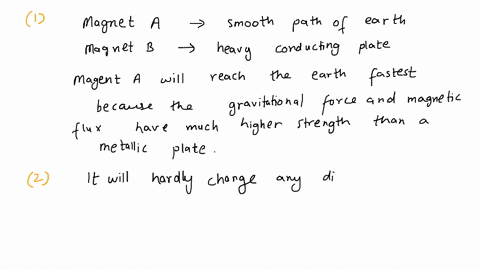 (1) Magnet A → smooth path of earth
Magnet B → heavy conducting plate
Magent A will reach the earth fastest
because the gravitational force and magnetic
flux have much higher strength than a
metallic plate.
(2) It will hardly change any di